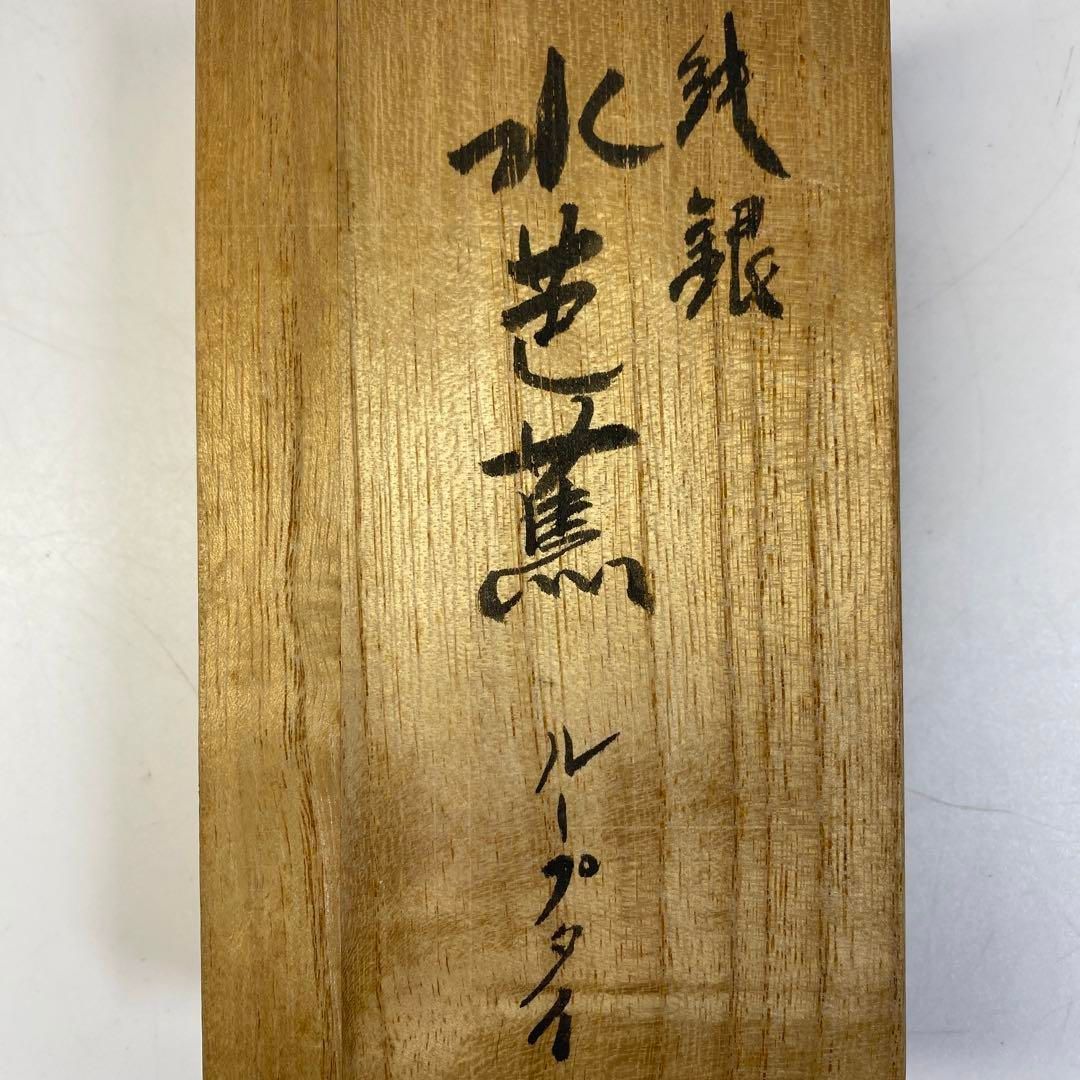 純銀
水芭蕉 ループタイ